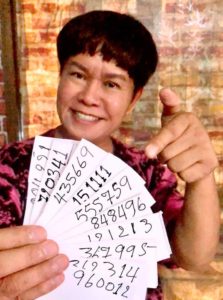 790341
435669
151111
555759
848496
191213
317995
219314
960012